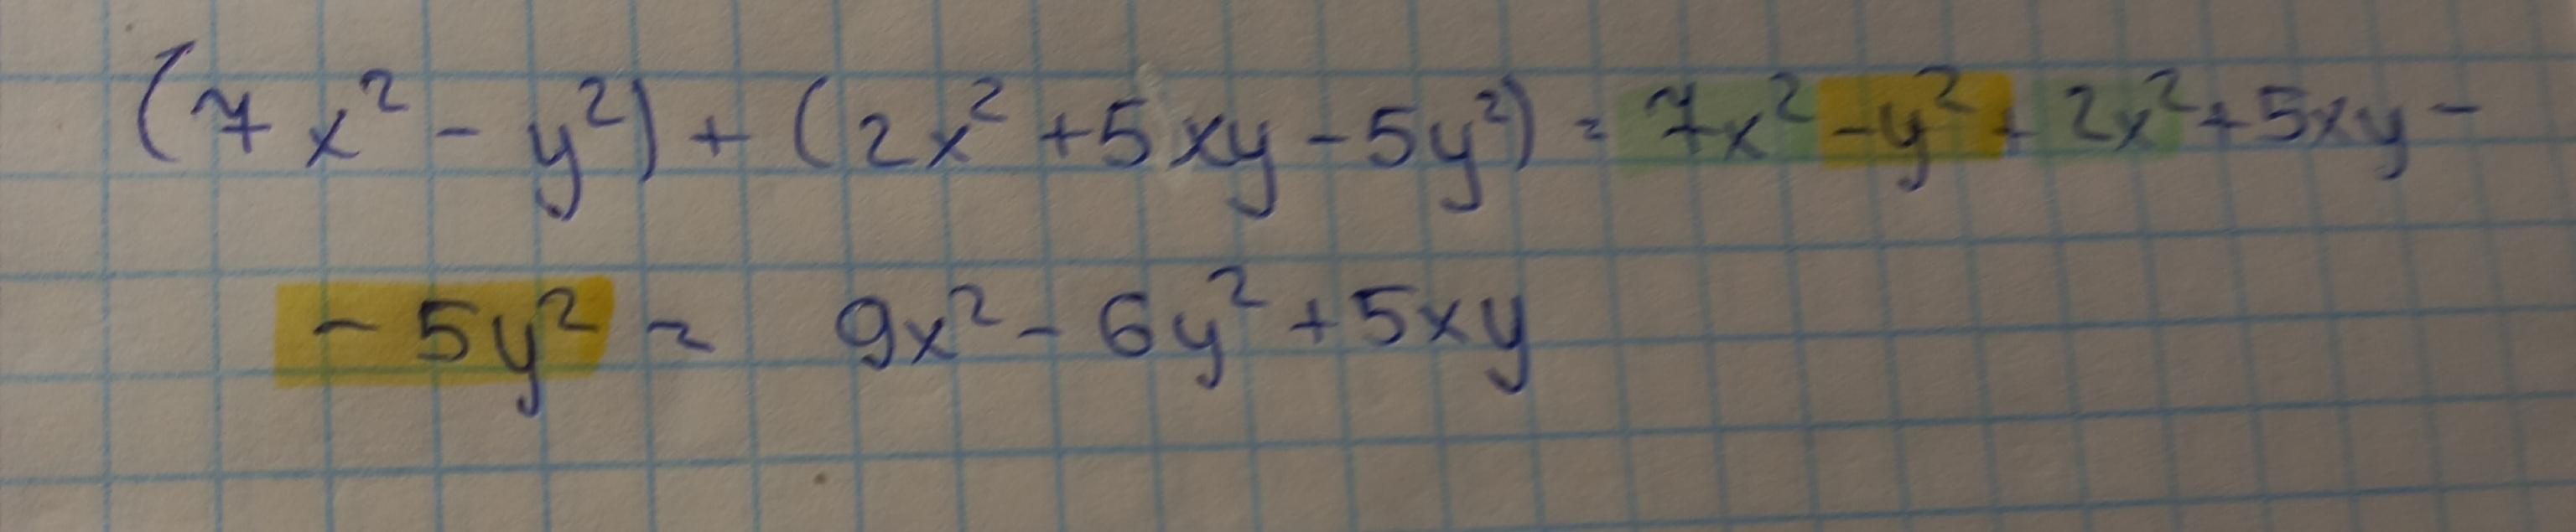 (7x² - y²) + (2x² + 5xy - 5y²) = 7x² - y² + 2x² + 5xy -
- 5y² = 9x² - 6y² + 5xy